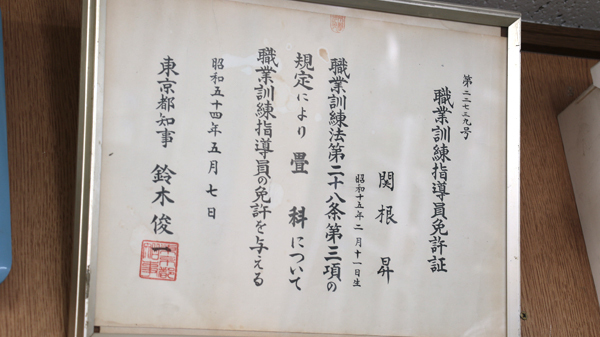 第二二七三九号
職業訓練指導員免許証
関根昇
昭和十五年二月十一日生
職業訓練法第二十八条第三項の
規定により畳科について
職業訓練指導員の免許を与える
昭和五十四年五月七日
東京都知事 鈴木俊一